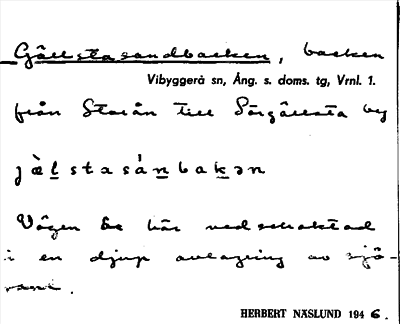 Gällstasandbacken, backen
Vibyggerå sn, Ång. s. doms. tg, Vrnl. 1.
från Storån till Sörgällsta by
jæ̀lstasánbakən
Vägen är här nedschaktad
i en djup avlagring av sjö-
sand.
HERBERT NÄSLUND 1946.